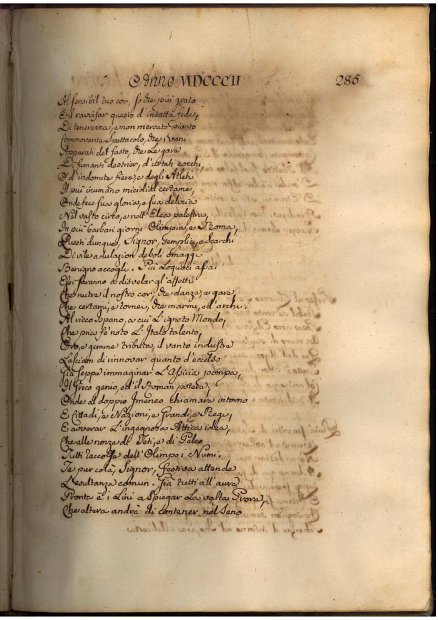 Anno MDCCCII 285
Al sensibil tuo cor, so che più grato
È il ravvisar questo d'intatta fede,
Di tenerezza, e non mercato pianto
Commovente spettacolo, che i vani
Apparati del fasto, che le gare
Di fumanti destrier, d'aurati cocchi,
O d'indomite fiere, e degli Atleti
Il più inumano micidial certame,
Onde feo sua gloria, e sua delizia
Nel vasto circo, e nell' Elea palestra,
In più barbari giorni Olimpia, e Roma,
Questi dunque, Signor, semplici, e scarchi
Di vile adulazion deboli omaggi
Benigno accogli. Più loquaci assai
E saranno a disvelar gl'affetti
Che nutre il nostro cor, che danze, e gare,
Che certami, e tornei, che marmi, ed archi.
Al ricco Ispano, a cui l'ignoto Mondo,
Che pria fè noto l'Italo talento,
Oro, e gemme tributa, il vanto industre
Lasciam di rinnovar quanto d'eccelso
Già seppe immaginar l'Assiria pompa,
Il Greco genio, ed il Roman potere,
Onde al doppio Imeneo chiamare intorno
E Cittadi, e Nazioni, e Grandi, e Regi,
E avverar l'ingegnosa Attica idea,
Che alle nozze di Teti, e di Peleo
Tutti raccolse dell' Olimpo i Numi.
Te pur colà, Signor, festiva attende
L'esultanza comun. Già tutti all'aura
Pronta è i lini a spiegar la vasta Prora,
Che altera andrà di contener nel seno